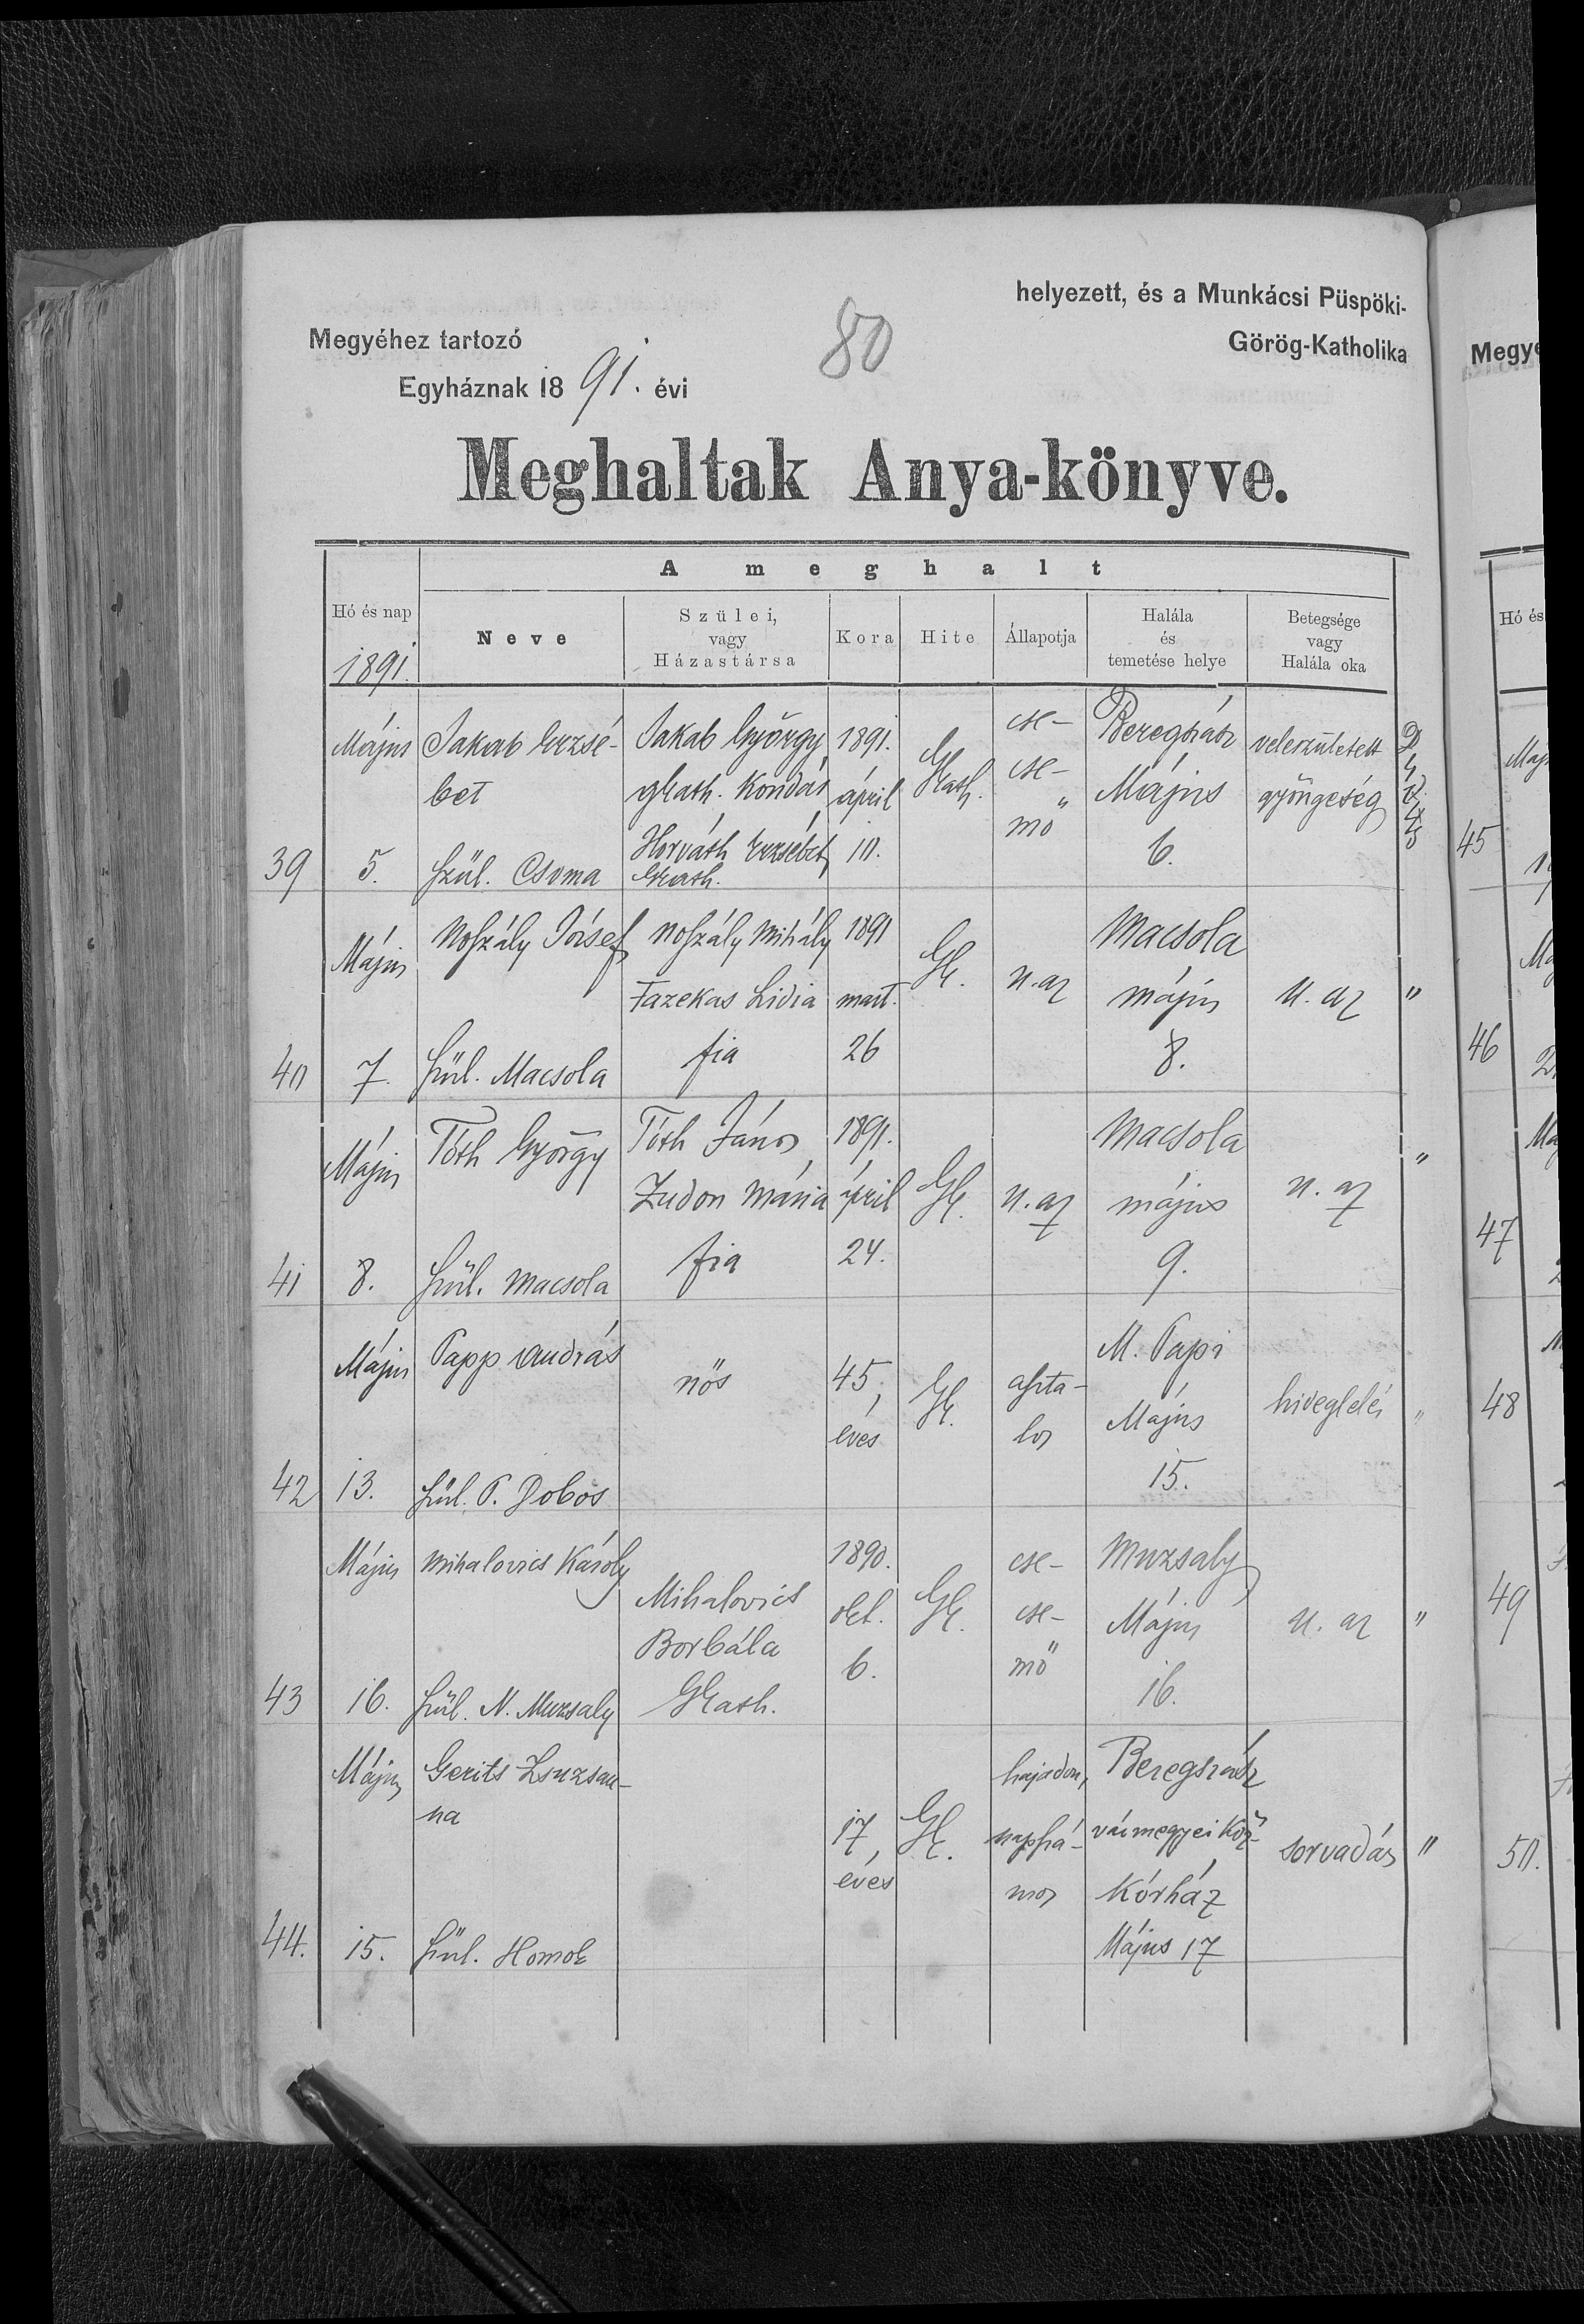 helyezett, és a Munkácsi Püspöki-
Megyéhez tartozó
80
Görög-Katholika
Egyháznak 1891. évi
Meghaltak Anya-könyve.
A meghalt
Hó és nap
1891.
Neve
Szülei,
vagy
Házastársa
Kora
Hite
Állapotja
Halála
és
temetése helye
Betegsége
vagy
Halála oka
39
Május
5.
Jakab Erzsé-
bet
szül. Csoma
Jakab György
gkath. Kondás
Horváth Erzsébet
Gkath.
1891.
ápril
10.
Gkath.
cse-
cse-
mő
Beregszász
Május
6.
veleszületett
gyöngeség
40
Május
7.
Noszály József
szül. Macsola
Noszály Mihály
Fazekas Lidia
fia
1891
mart.
26
Gk.
u. az
Macsola
május
8.
u. az
"
41
Május
8.
Tóth György
szül. Macsola
Tóth János
Zudon Mária
fia
1891.
ápril
24.
Gk.
u. az
Macsola
május
9.
u. az
"
42
Május
13.
Papp András
szül. P. Dobos
nős
45
éves
Gk.
aszta-
los
M. Papi
Május
15.
"
43
Május
16.
Mihalovics Károly
szül. N. Muzsaly
Mihalovics
Borbála
Gkath.
1890.
okt.
6.
Gk.
cse-
cse-
mő
Muzsaly
Május
16.
u. az
"
44.
Május
15.
Gerits Zsuzsan-
na
szül. Homok
17
éves
Gk.
hajadon,
napszá-
mos
Beregszász
vármegyei köz-
kórház
Május 17
sorvadás
"
Megye
Hó és
45
46
47
48
49
50.